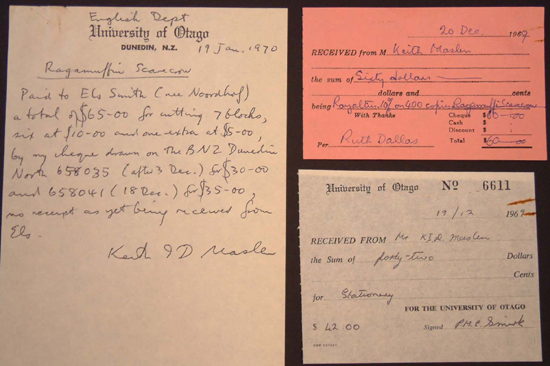 English Dept
University of Otago
DUNEDIN, N.Z.
19 Jan. 1970
Ragamuffin Scarecrow
Paid to Els Smith (née Noordhof)
a total of $65-00 for cutting 7 blocks,
six at $10-00 and one extra at $5-00,
by my cheque drawn on the BNZ Dunedin
North 658035 (after 3 Dec.) for $30-00
and 658041 (18 Dec.) for $35-00,
no receipt as yet being received from
Els.
Keith I D Maslen
20 Dec. 1969
RECEIVED from M Keith Maslen
the sum of Sixty dollars
dollars and cents
being Royalties 10% on 400 copies Ragamuffin Scarecrow
With Thanks Cheque $60-00
Cash $
Discount $
Per Ruth Dallas Total $60-00
University of Otago No 6611
19/12 1969
RECEIVED FROM Mr K.I.D. Maslen
the Sum of forty-two Dollars
Cents
for Stationery
FOR THE UNIVERSITY OF OTAGO
$ 42.00 Signed